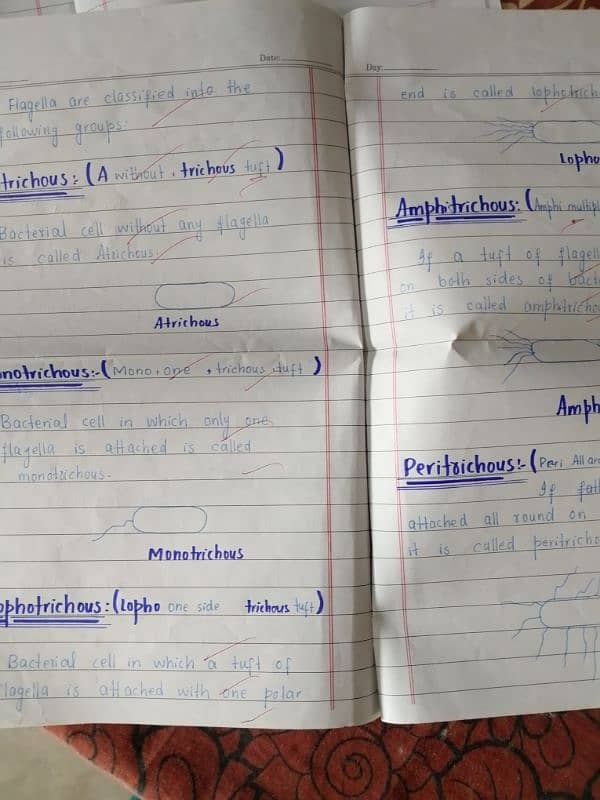 Date:
Flagella are classified into the
following groups:
trichous: (A without , trichous tuft)
Bacterial cell without any flagella
is called Atrichous.
Atrichous
notrichous:- (Mono, one , trichous, tuft)
Bacterial cell in which only one
flagella is attached is called
monotrichous.
Monotrichous
ophotrichous: (Lopho one side trichous tuft)
Bacterial cell in which a tuft of
flagella is attached with one polar
Day:
end is called lophotrich
Lopho
Amphitrichous: (Amphi multipl
If a tuft of flagell
on both sides of bact
it is called amphitricho
Amph
Peritrichous:- (Peri All
If
attached all round on
it is called peritricho